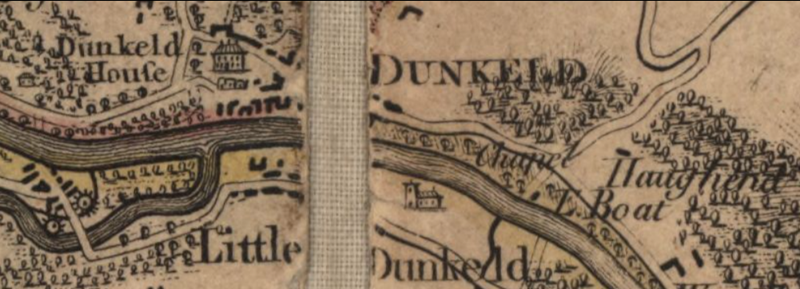 Dunkeld
House
DUNKELD
Chapel
Haughend
E. Boat
Little Dunkeld